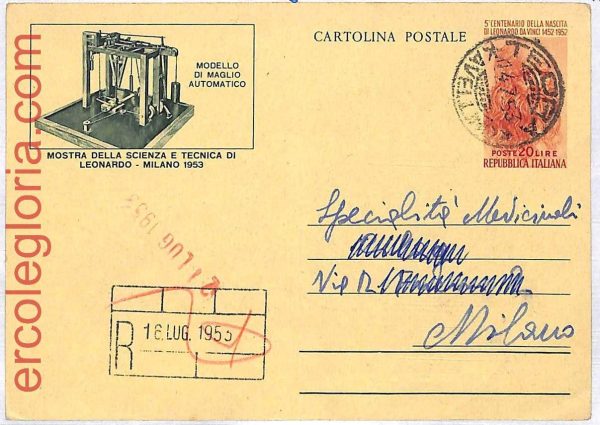 CARTOLINA POSTALE
5º CENTENARIO DELLA NASCITA
DI LEONARDO DA VINCI 1452-1952
MODELLO
DI MAGLIO
AUTOMATICO
MOSTRA DELLA SCIENZA E TECNICA DI
LEONARDO - MILANO 1953
TEORA
POSTE 20 LIRE
REPUBBLICA ITALIANA
Specialità Medicinali
Via
Milano
LUG 1953
R 16.LUG.1953
ercolegloria.com